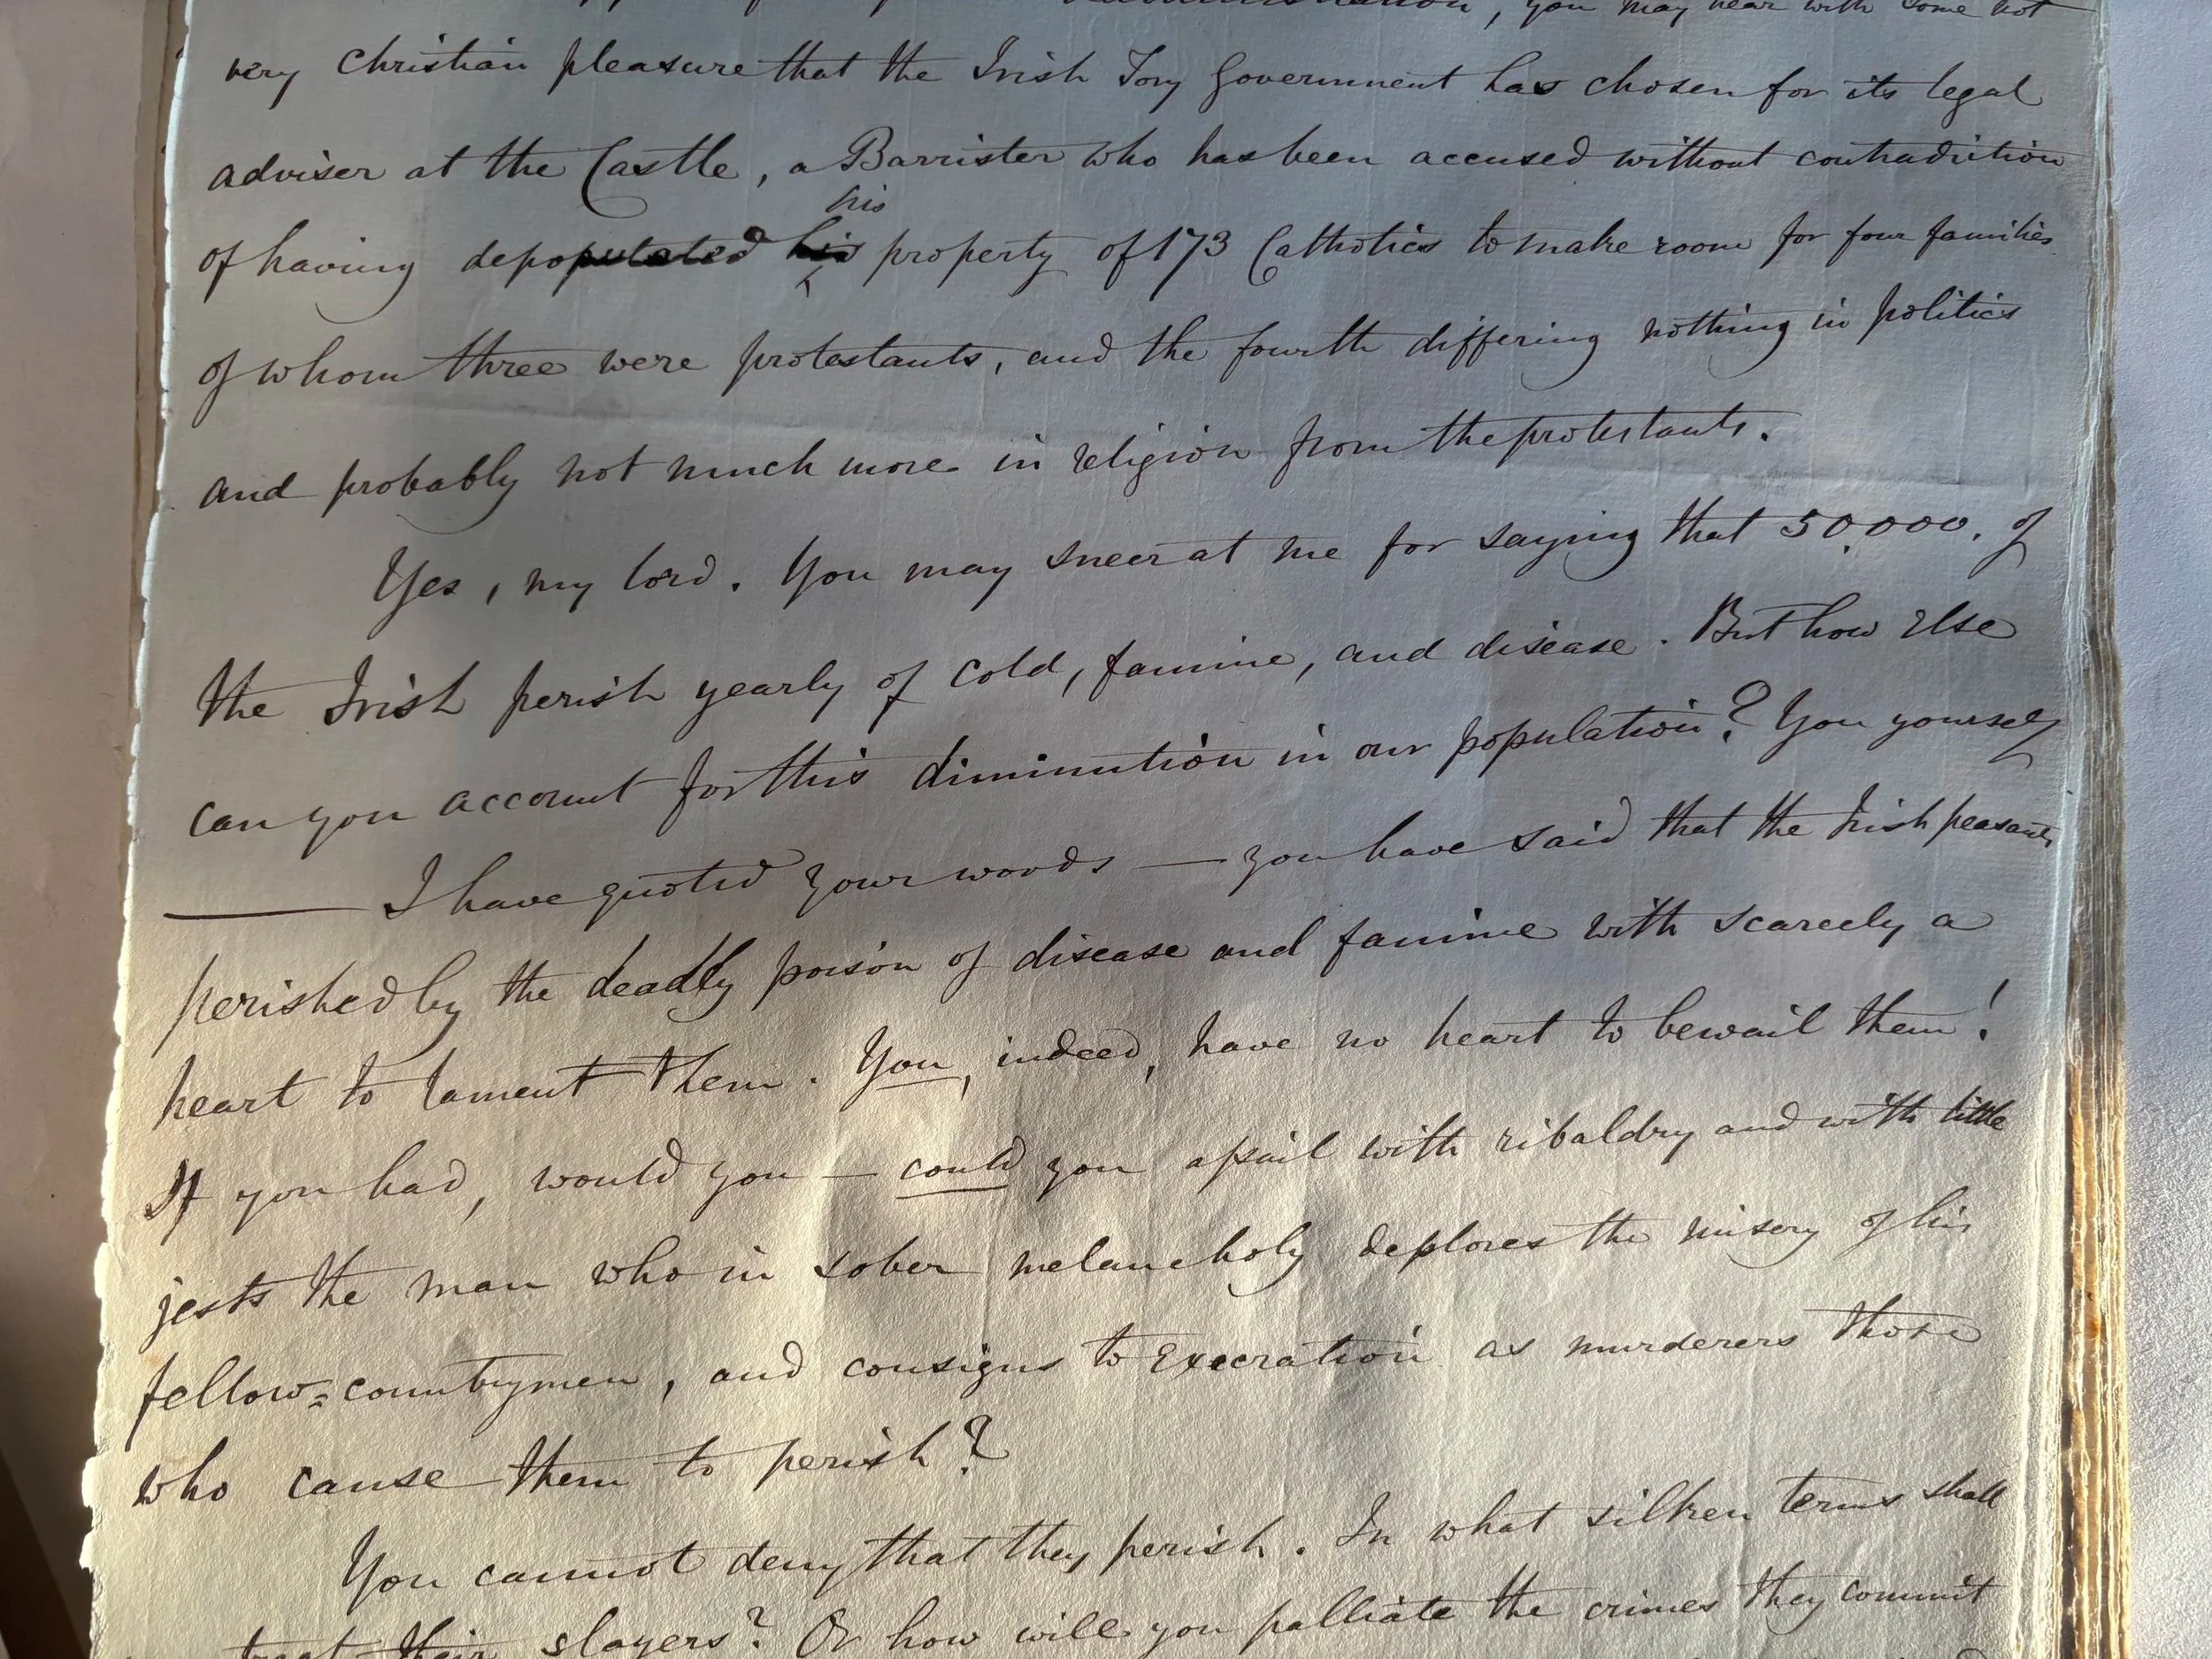 Administration, you may hear with some not
very Christian pleasure that the Irish Tory Government has chosen for its legal
adviser at the Castle, a Barrister who has been accused without contradiction
his
of having depopulated his property of 173 Catholics to make room for four families
of whom three were protestants, and the fourth differing nothing in politics
and probably not much more in religion from the protestants.
Yes, my lord. You may sneer at me for saying that 50,000, of
the Irish perish yearly of cold, famine, and disease. But how else
can you account for this diminution in our population? You yourself
— I have quoted your words — you have said that the Irish peasants
perished by the deadly poison of disease and famine with scarcely a
heart to lament them. You, indeed, have no heart to bewail them!
If you had, would you — could you assail with ribaldry and with little
jests the man who in sober melancholy deplores the misery of his
fellow=countrymen, and consigns to execration as murderers those
who cause them to perish?
You cannot deny that they perish. In what silken terms shall
treat their slayers? Or how will you palliate the crimes they commit